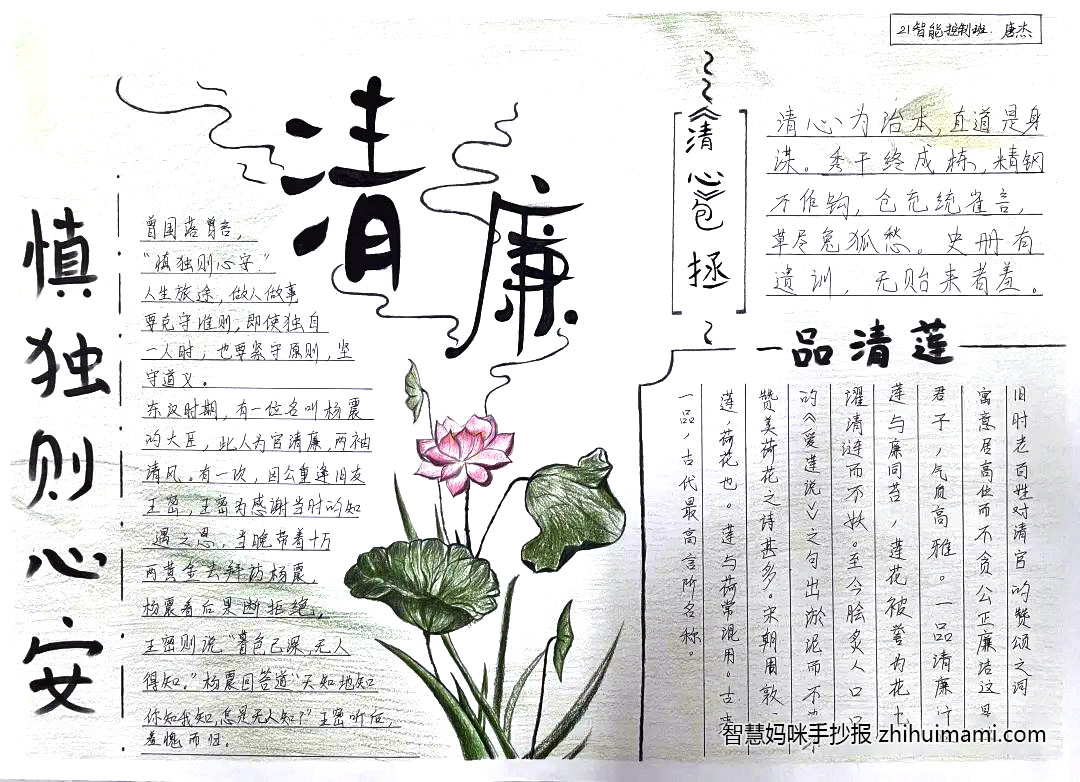 21智能控制班 唐杰
清廉
慎独则心安
曾国藩曾言,
“慎独则心安.”
人生旅途,做人做事
要克守准则,即使独自
一人时,也要坚守原则,坚
守道义。
东汉时期,有一位名叫杨震
的大臣,此人为官清廉,两袖
清风。有一次,因公重逢旧友
王密,王密为感谢当时的知
遇之恩,当晚带着十万
两黄金去拜访杨震,
杨震看后果断拒绝,
王密则说“着色已深,无人
得知.”杨震回答道“天知地知
你知我知,怎是无人知?”王密听后,
羞愧而归.
《清心》包拯
清心为治本,直道是身
谋。秀干终成栋,精钢
不作钩,仓充统雀言,
草尽兔狐愁。史册有
遗训,无贻来者羞。
一品清莲
一品,古代最高言阶名称。
莲,荷花也。莲与荷常混用。古
赞美荷花之诗甚多。宋朝周敦
的《爱莲说》之句出淤泥而不
濯清涟而不妖。至今脍炙人口
莲与廉同苔,莲花被誉为花
君子,气质高雅。一品清廉
寓意居高位而不贪公正廉洁这
旧时老百姓对清官的赞颂之词
智慧妈咪手抄报 zhihuimami.com